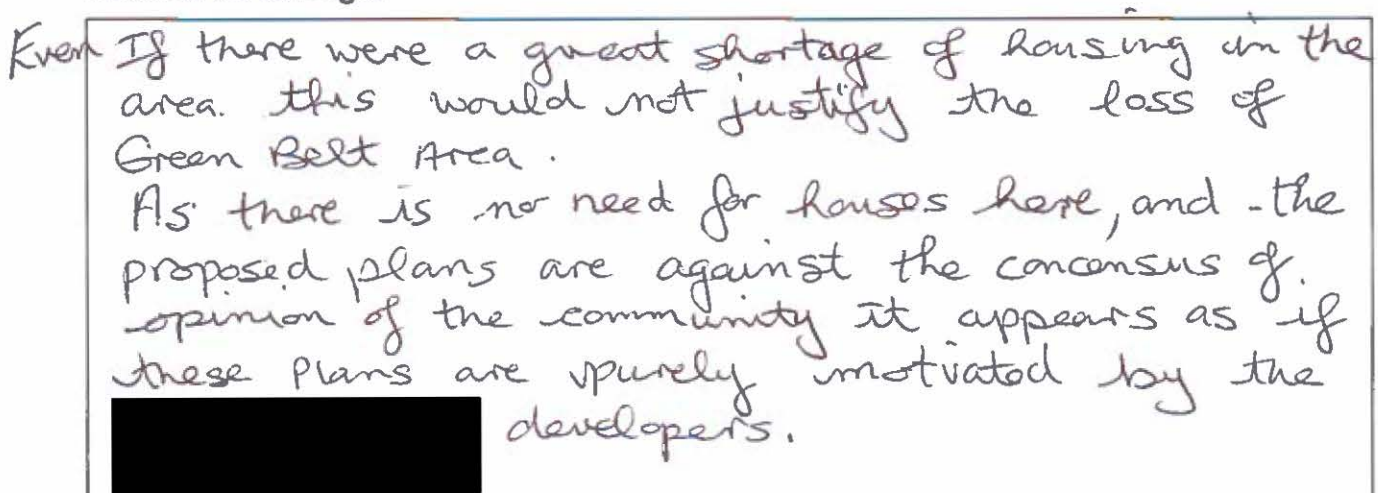 Even If there were a great shortage of housing in the
area. this would not justify the loss of
Green Belt Area.
As there is no need for houses here, and the
proposed plans are against the concensus of
opinion of the community it appears as if
these Plans are purely motivated by the
developers.